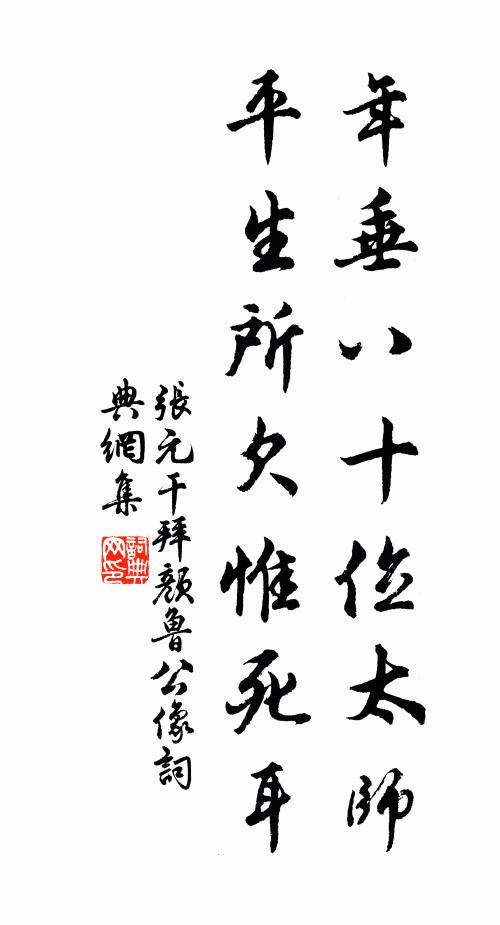 年垂八十位太師
平生所欠惟死耳
張元干拜顏魯公像詞
典網集
詞典
网印